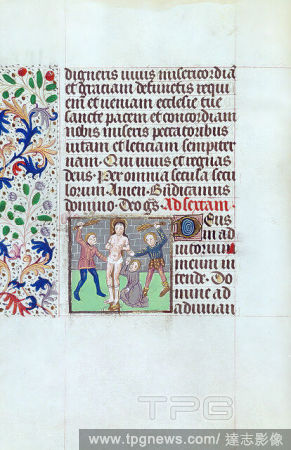 digneris uiuis misericordiā
et graciam defunctis requi
em et ueniam ecclesie tue
sancte pacem et concordiam
nobis miseris peccatoribus
uitam et leticiam sempiter
nam. Qui uiuis et regnas
deus. Per omnia secula secu
lorum. Amen. Bñdicamus
domino. Deo grās. Ad sextam.
Deus
in ad
iutorium
meum in
tende. Do
mine ad
adiuuan
TPG
www.tpgnews.com/ 達志影像